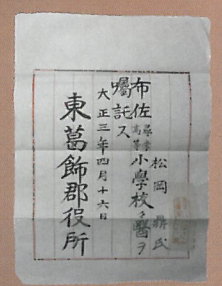 松岡鼎氏
布佐尋常高等小學校々醫ヲ
囑託ス
大正三年四月十六日
東葛飾郡役所